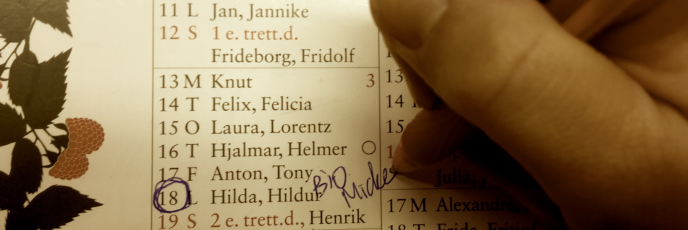 11 L Jan, Jannike
12 S 1 e. trett.d.
Frideborg, Fridolf
13 M Knut 3
14 T Felix, Felicia
15 O Laura, Lorentz
16 T Hjalmar, Helmer
17 F Anton, Tony
18 L Hilda, Hildur
Bio Micke
19 S 2 e. trett.d., Henrik
13
14
15
Julia,
17 M Alexandra,
18 T